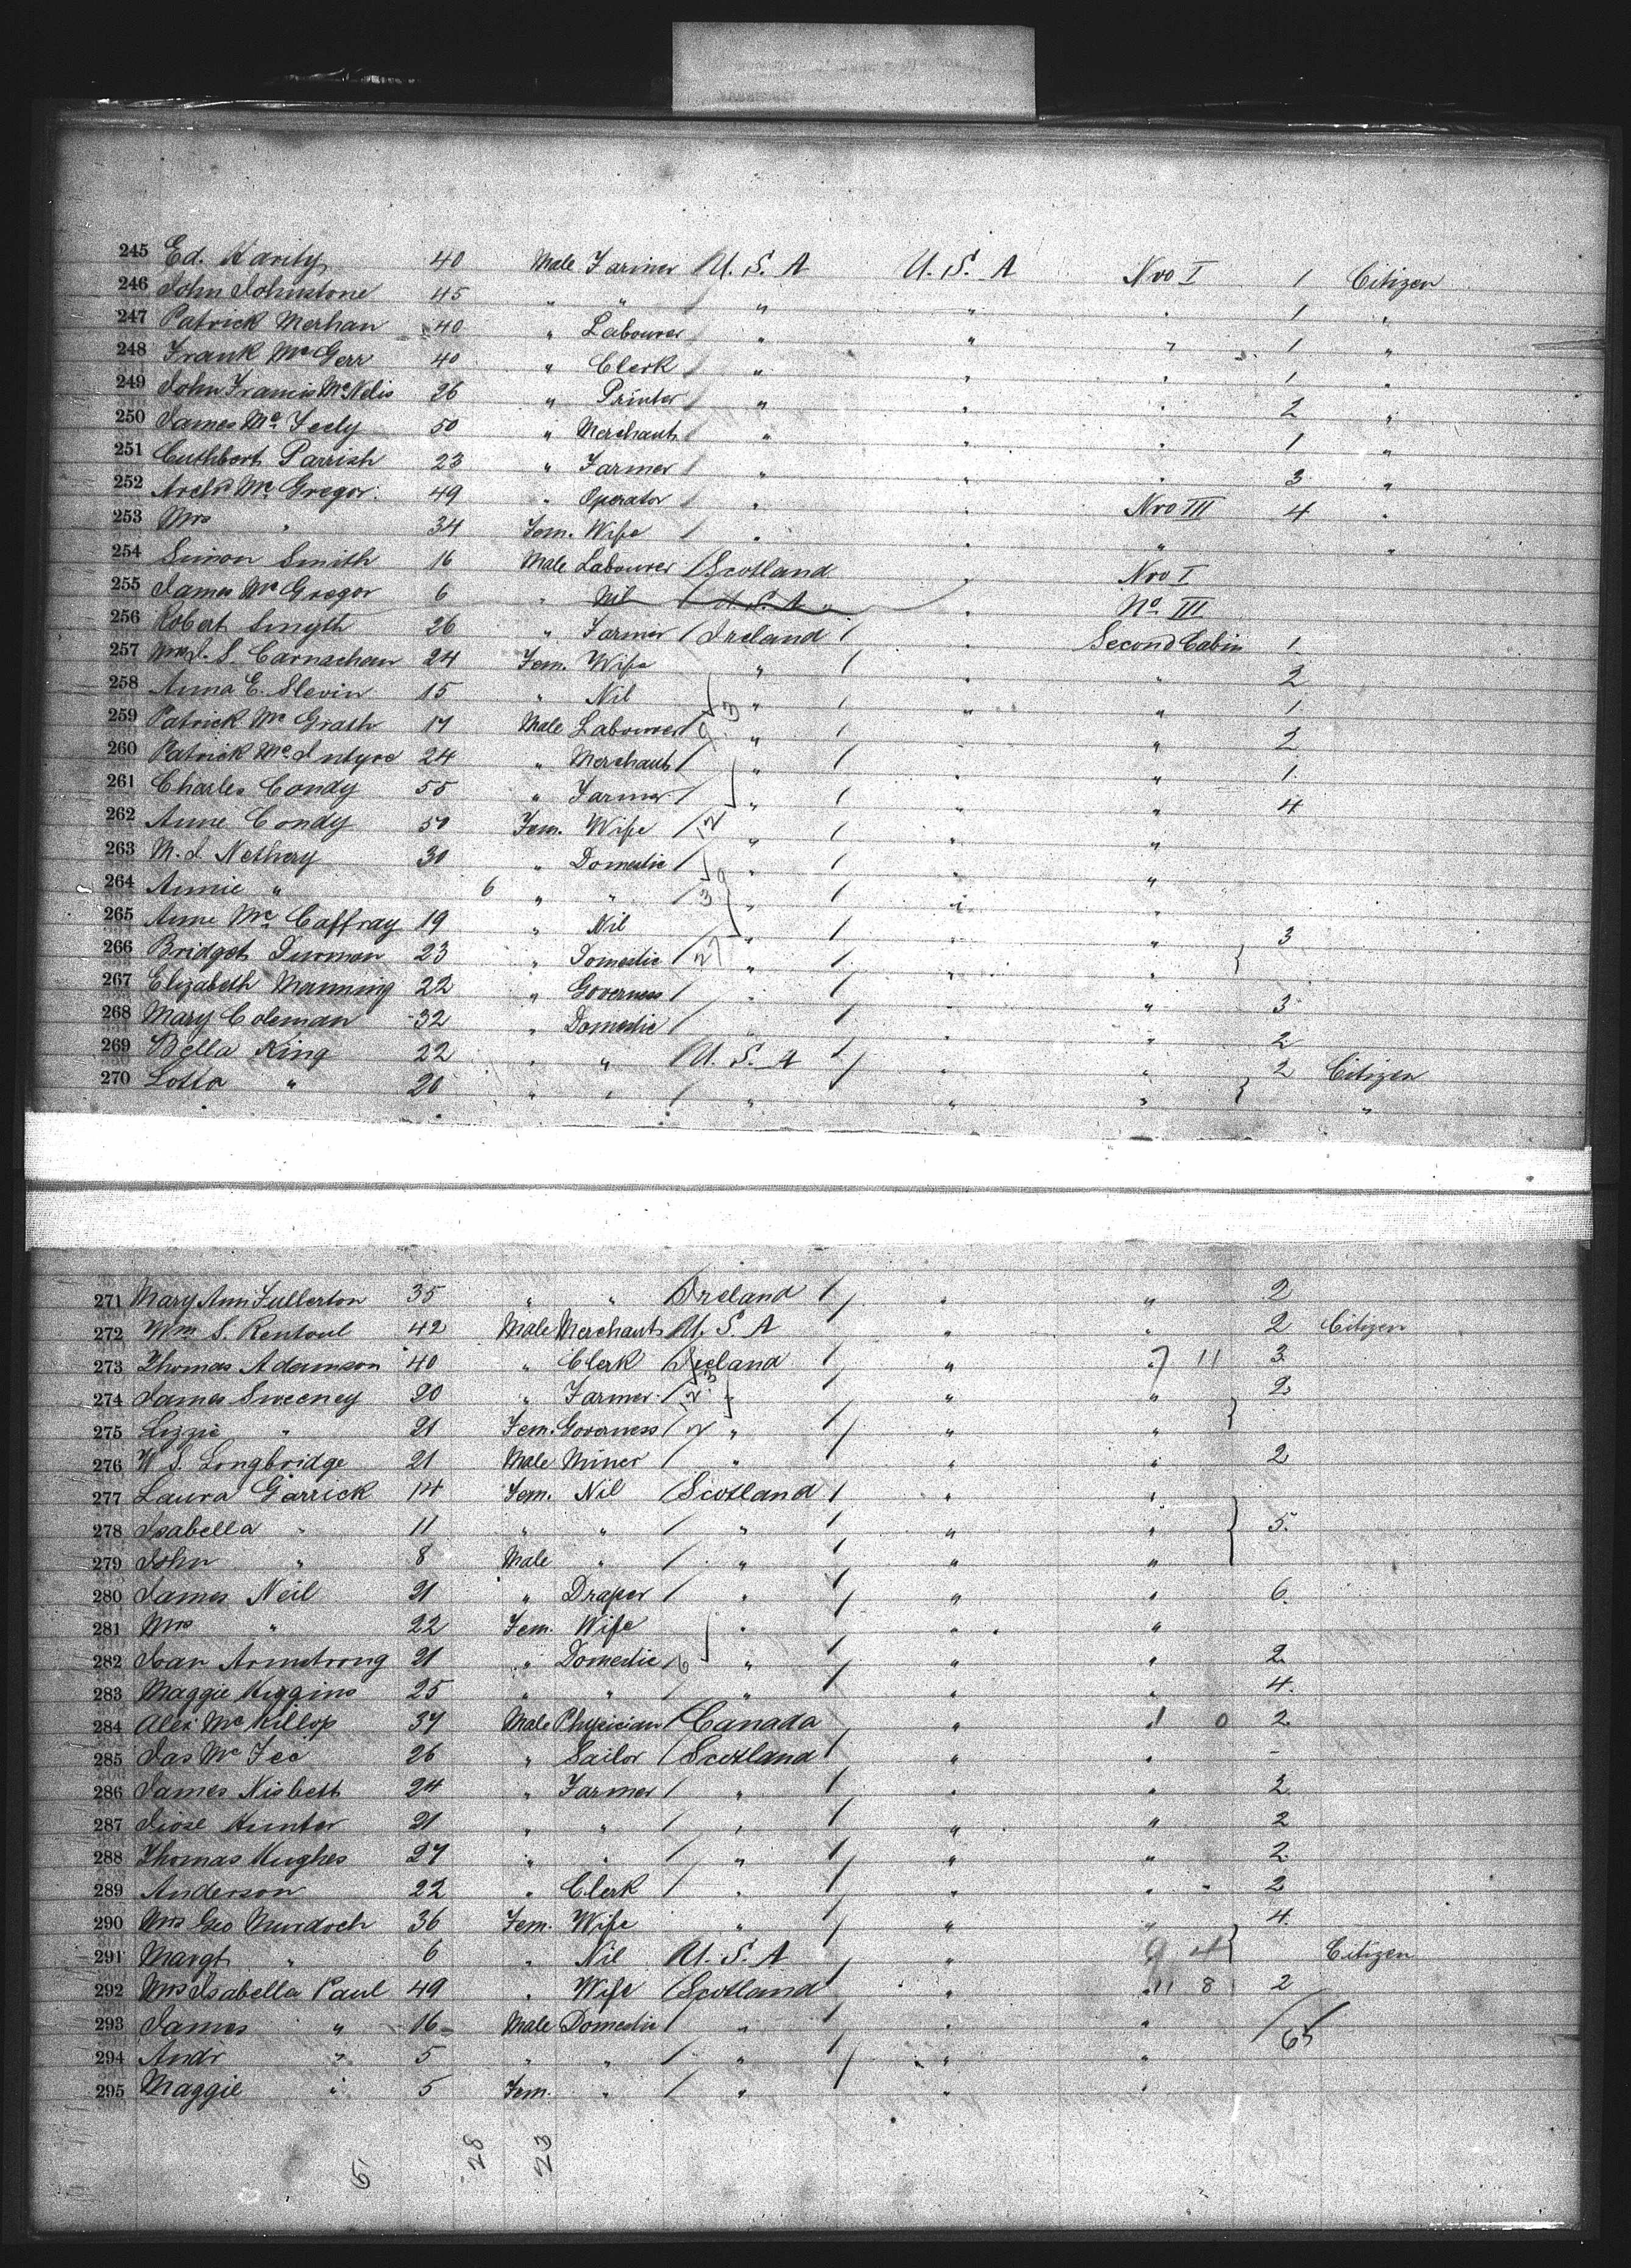 245 Ed. Harity 40 Male Farmer U. S. A U. S. A Nro I 1 Citizen
246 John Johnstone 45 " " " " " 1 "
247 Patrick Merhan 40 " Labourer " " " 1 "
248 Frank McGerr 40 " Clerk " " " 1 "
249 John Francis McNelis 26 " Printer " " " 2 "
250 James Mc Feely 50 " Merchant " " " 1 "
251 Cuthbert Parrish 23 " Farmer " " " 3 "
252 Arch'd Mc Gregor 49 " Operator " " Nro III 4 "
253 Mrs " 34 Fem. Wife " " " "
254 Simon Smith 16 Male Labourer Scotland " Nro I
255 James McGregor 6 " Nil U. S. A " No III
256 Robert Smyth 26 " Farmer Ireland " Second Cabin 1
257 Mrs J. S. Carnachan 24 Fem. Wife " " " 2
258 Anna E. Slevin 15 " Nil " " " 1
259 Patrick Mc Grath 17 Male Labourer " " " 2
260 Patrick Mc Intyre 24 " Merchant " " " 1
261 Charles Condy 55 " Farmer " " " 4
262 Anne Condy 50 Fem. Wife " " "
263 M. J. Nethery 30 " Domestic " " "
264 Annie " 6 " " " " "
265 Anne Mc Caffray 19 " Nil " " " 3
266 Bridget Durman 23 " Domestic " " "
267 Elizabeth Manning 22 " Governess " " " 3
268 Mary Coleman 32 " Domestic " " " 2
269 Bella King 22 " " U. S. A " " 2 Citizen
270 Lotta " 20 " " " " " "
271 Mary Ann Fullerton 35 " " Ireland " " 2
272 Wm S. Rentoul 42 Male Merchant U. S. A " " 2 Citizen
273 Thomas Adamson 40 " Clerk Ireland " " 11 3
274 James Sweeney 20 " Farmer " " " 2
275 Lizzie " 21 Fem. Governess " " "
276 W S. Longbridge 21 Male Miner " " " 2
277 Laura Garrick 14 Fem. Nil Scotland " "
278 Isabella " 11 " " " " " 5
279 John " 8 Male " " " "
280 James Neil 21 " Draper " " " 6
281 Mrs " 22 Fem. Wife " " "
282 Jean Armstrong 21 " Domestic " " " 2
283 Maggie Higgins 25 " " " " " 4
284 Alex Mc Killop 37 Male Physician Canada " " 0 2
285 Jas Mc Fee 26 " Sailor Scotland " " -
286 James Nisbett 24 " Farmer " " " 2
287 Hunter 21 " " " " " 2
288 Thomas Hughes 27 " " " " " 2
289 Anderson 22 " Clerk " " " 2
290 Mrs Geo Murdoch 36 Fem. Wife " " " 4
291 Margt " 6 " Nil U. S. A " 9 4 Citizen
292 Mrs Isabella Paul 49 " Wife Scotland " 11 8 2
293 James " 16 Male Domestic " " " 65
294 Andr " 5 " " " " "
295 Maggie " 5 Fem. " " " "
28 23